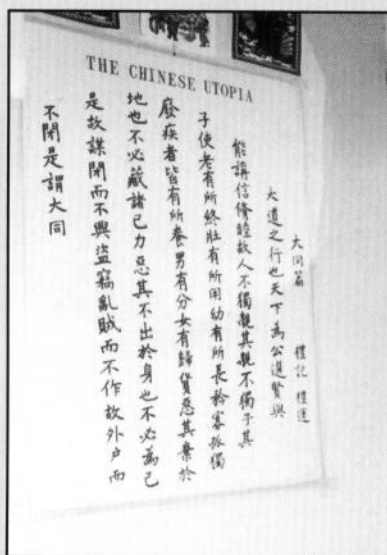 THE CHINESE UTOPIA
大同篇 禮記 禮運
大道之行也天下為公選賢與
能講信脩睦故人不獨親其親不獨子其
子使老有所終壯有所用幼有所長矜寡孤獨
廢疾者皆有所養男有分女有歸貨惡其棄於
地也不必藏諸己力惡其不出於身也不必為己
是故謀閉而不興盜竊亂賊而不作故外戶而
不閉是謂大同